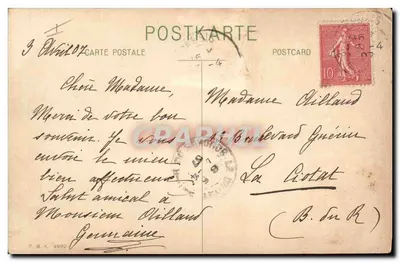 POSTKARTE
CARTE POSTALE
POSTCARD
3 Avril 07
10
Chère Madame,
Merci de votre bon
souvenir. Je vous
envoie le mien
bien affectueux
Salut amical à
Monsieur Aillaud
Germaine
Madame Aillaud
Boulevard Guérin
La Ciotat
(B. du R)